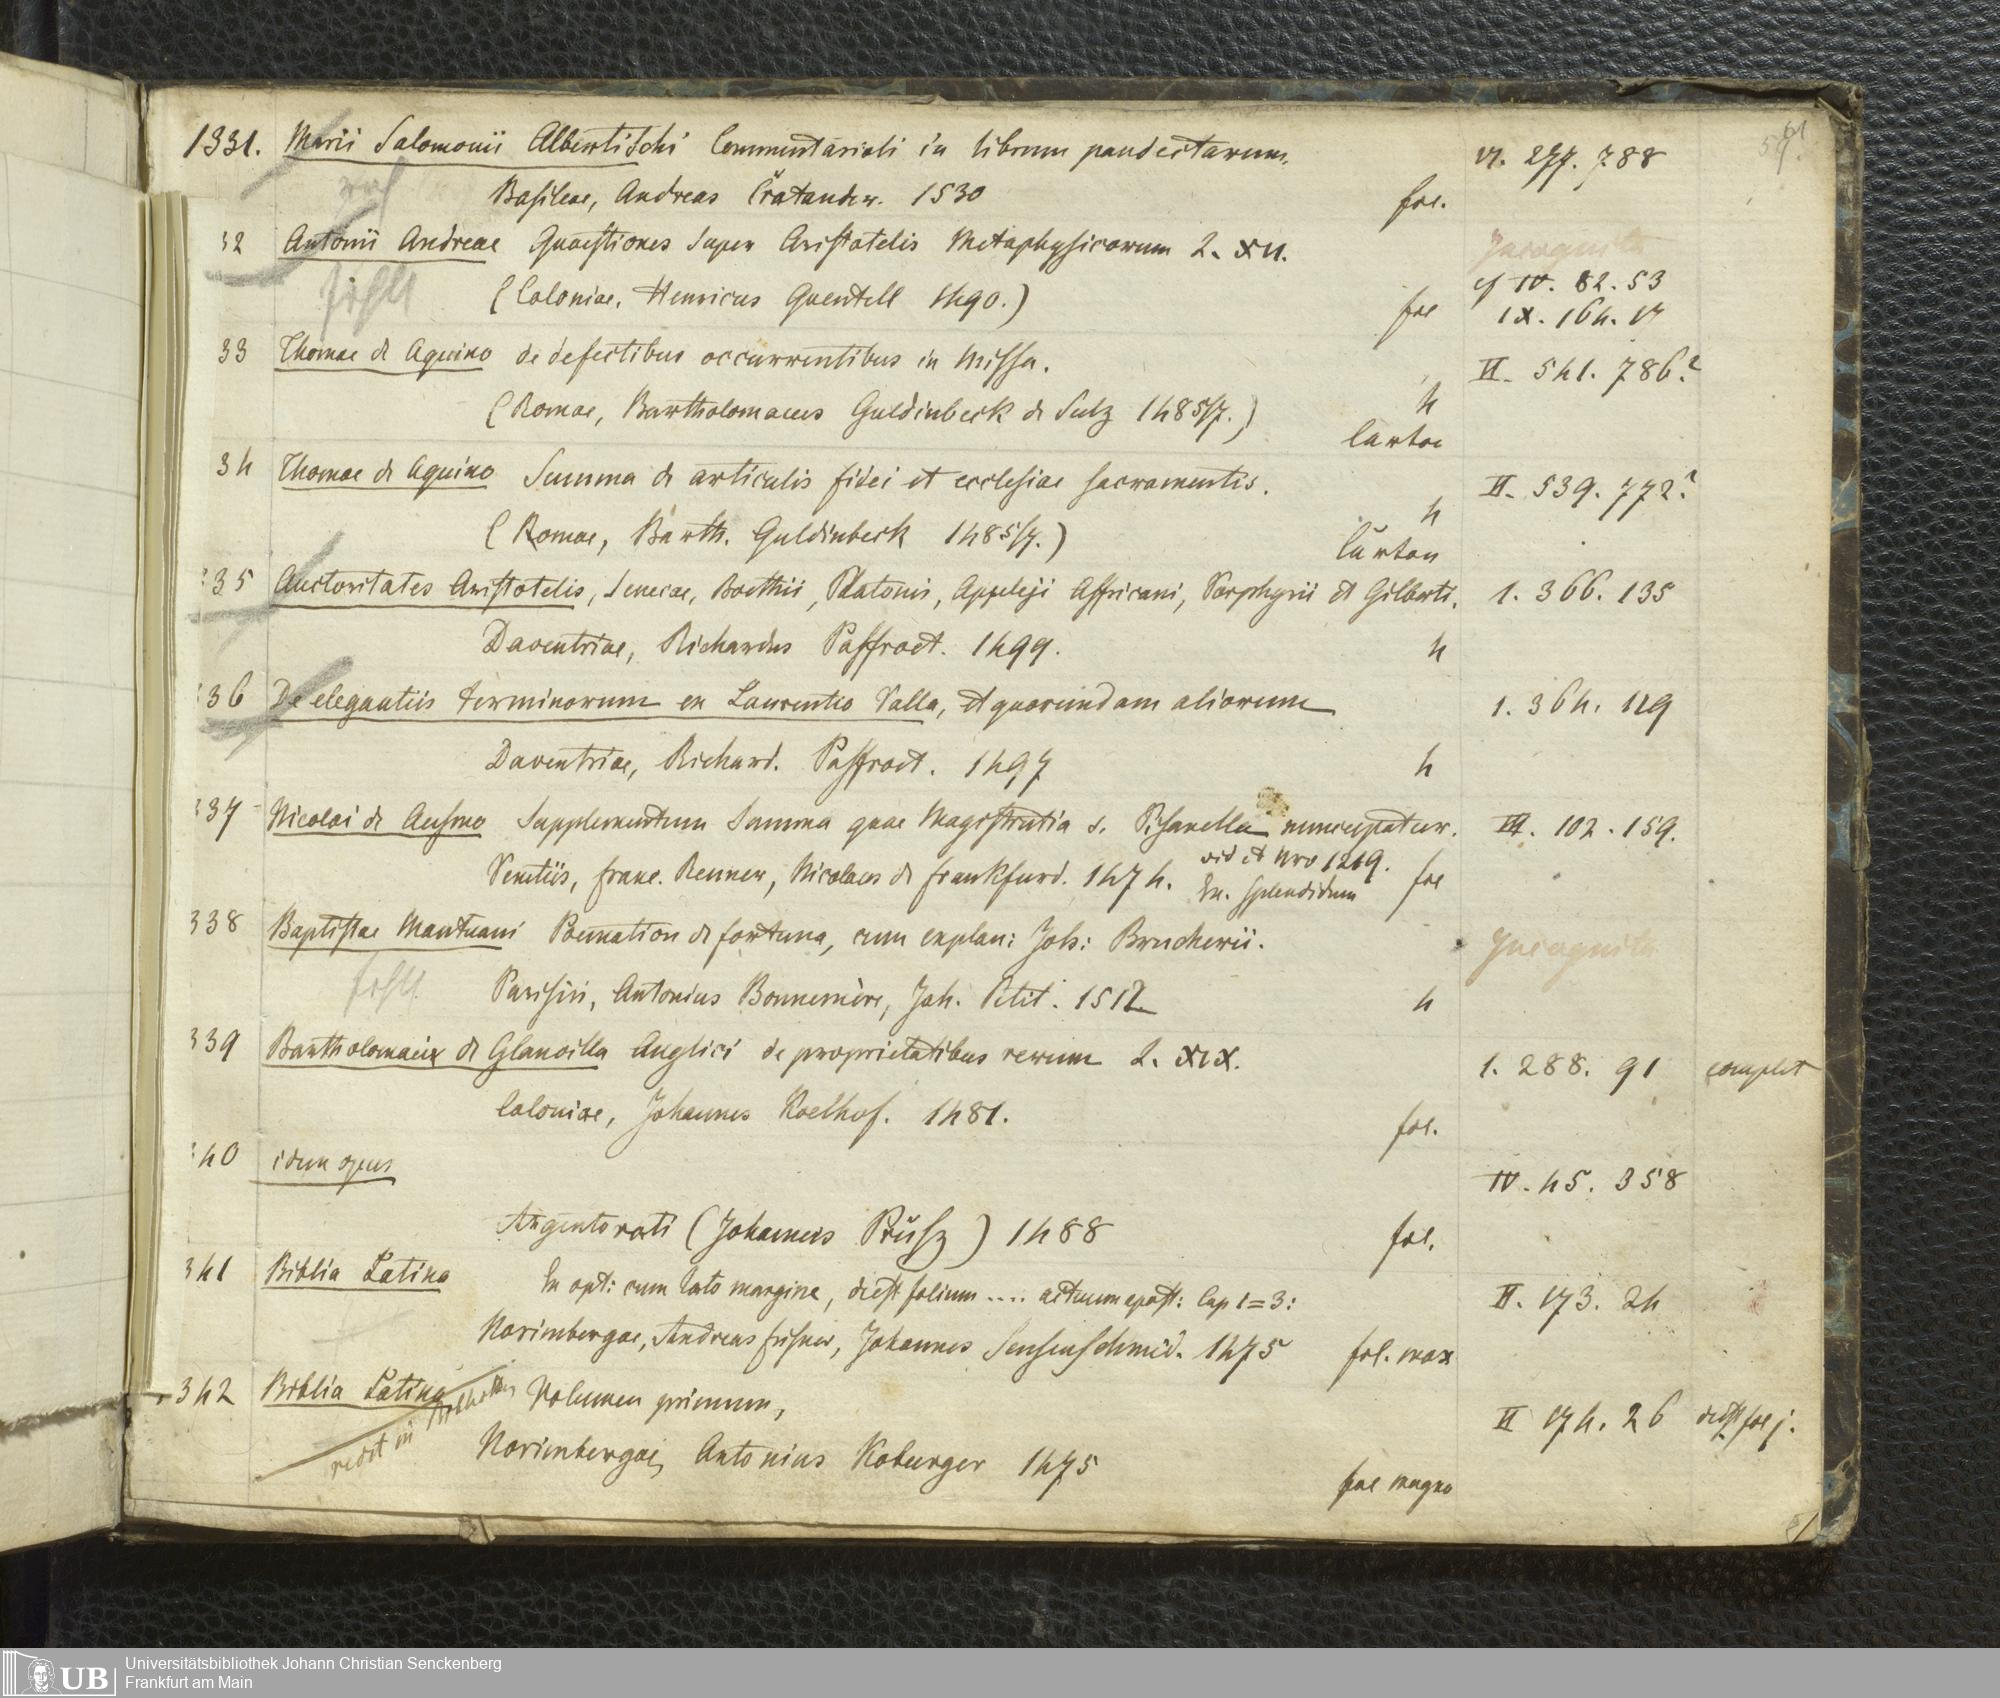 61
1331. Marii Salomonii Albertischi Commentarioli in librum pandectarum. VI. 277. 788
Basileae, Andreas Cratander. 1530 fol.
32 Antonii Andreae Quaestiones super Aristotelis Metaphysicorum L. XII. Incognita
fehlt (Coloniae, Henricus Quentell 1490.) fol cf IV. 82. 53
IX. 164. 17
33 Thomae de Aquino de defectibus occurrentibus in Missa. II. 541. 786?
(Romae, Bartholomaeus Guldinbeck de Sulz 1485/7.) 4
carton
34 Thomae de Aquino Summa de articulis fidei et ecclesiae sacramentis. II. 539. 772?
(Romae, Barth. Guldinbeck 1485/7.) 4
carton
335 Auctoritates Aristotelis, Senecae, Boethii, Platonis, Appuleji Affricani, Porphyrii et Gilberti. 1. 366. 135
Daventriae, Richardus Paffroet. 1499. 4
336 De elegantiis terminorum ex Laurentio Valla, et quorundam aliorum 1. 364. 119
Daventriae, Richard. Paffroet. 1497 4
337 Nicolai de Ausmo Supplementum Summa quae Magistrutia s. Pisanella nuncupatur. III. 102. 159.
Venetiis, franc. Renner, Nicolaus de frankfurd. 1474. vid et Nro 1219. fol
Ex. splendidum
338 Baptistae Mantuani Poemation de fortuna, cum explan: Joh: Brucherii. Incognita
fehlt Parisiis, Antonius Bonnemère, Joh. Petit. 1512 4
339 Bartholomaei de Glanvilla Anglici de proprietatibus rerum L. XIX. 1. 288. 91 complet
Coloniae, Johannes Koelhof. 1481. fol.
340 idem opus IV. 45. 358
Argentorati (Johannes Prüsz) 1488 fol.
341 Biblia Latina Ex opt: cum lato margine, deest folium .... actuum apost: Cap 1=3: II. 173. 24
Norimbergae, Andreas frisner, Johannes Sensenschmid. 1475 fol. max
342 Biblia Latina Volumen primum, II 174. 26 deest fol j.
redit in
Norimbergae, Antonius Koburger 1475 fol magno
UB Universitätsbibliothek Johann Christian Senckenberg
Frankfurt am Main